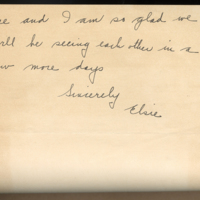 and I am so glad we
be seeing each other in a
more days
Sincerely
Elsie